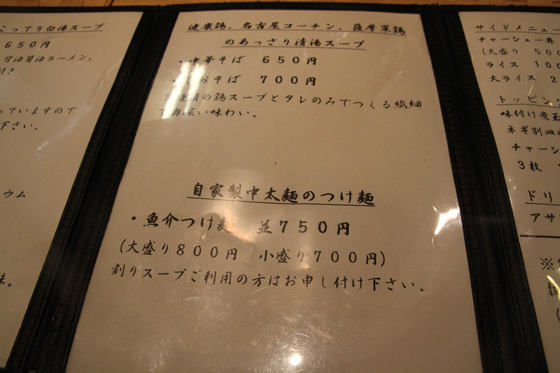 こってり白湯スープ
650円
甘油醤油ラーメン。
付き
っていますので
下さい。
ウム
味。
健康鶏、名古屋コーチン、薩摩軍鶏
のあっさり清湯スープ
中華そば 650円
おそば 700円
の鶏スープとタレのみでつくる繊細
味わい。
自家製中太麺のつけ麺
・魚介つけ麺 並750円
(大盛り800円 小盛り700円)
割りスープご利用の方はお申し付け下さい。
サイドメニュー
チャーシュー丼
(大盛り 500
ライス 100
大ライス 2
トッピン
味付け
ネギ別皿
チャーシ
3枚
ドリ
アサ
※